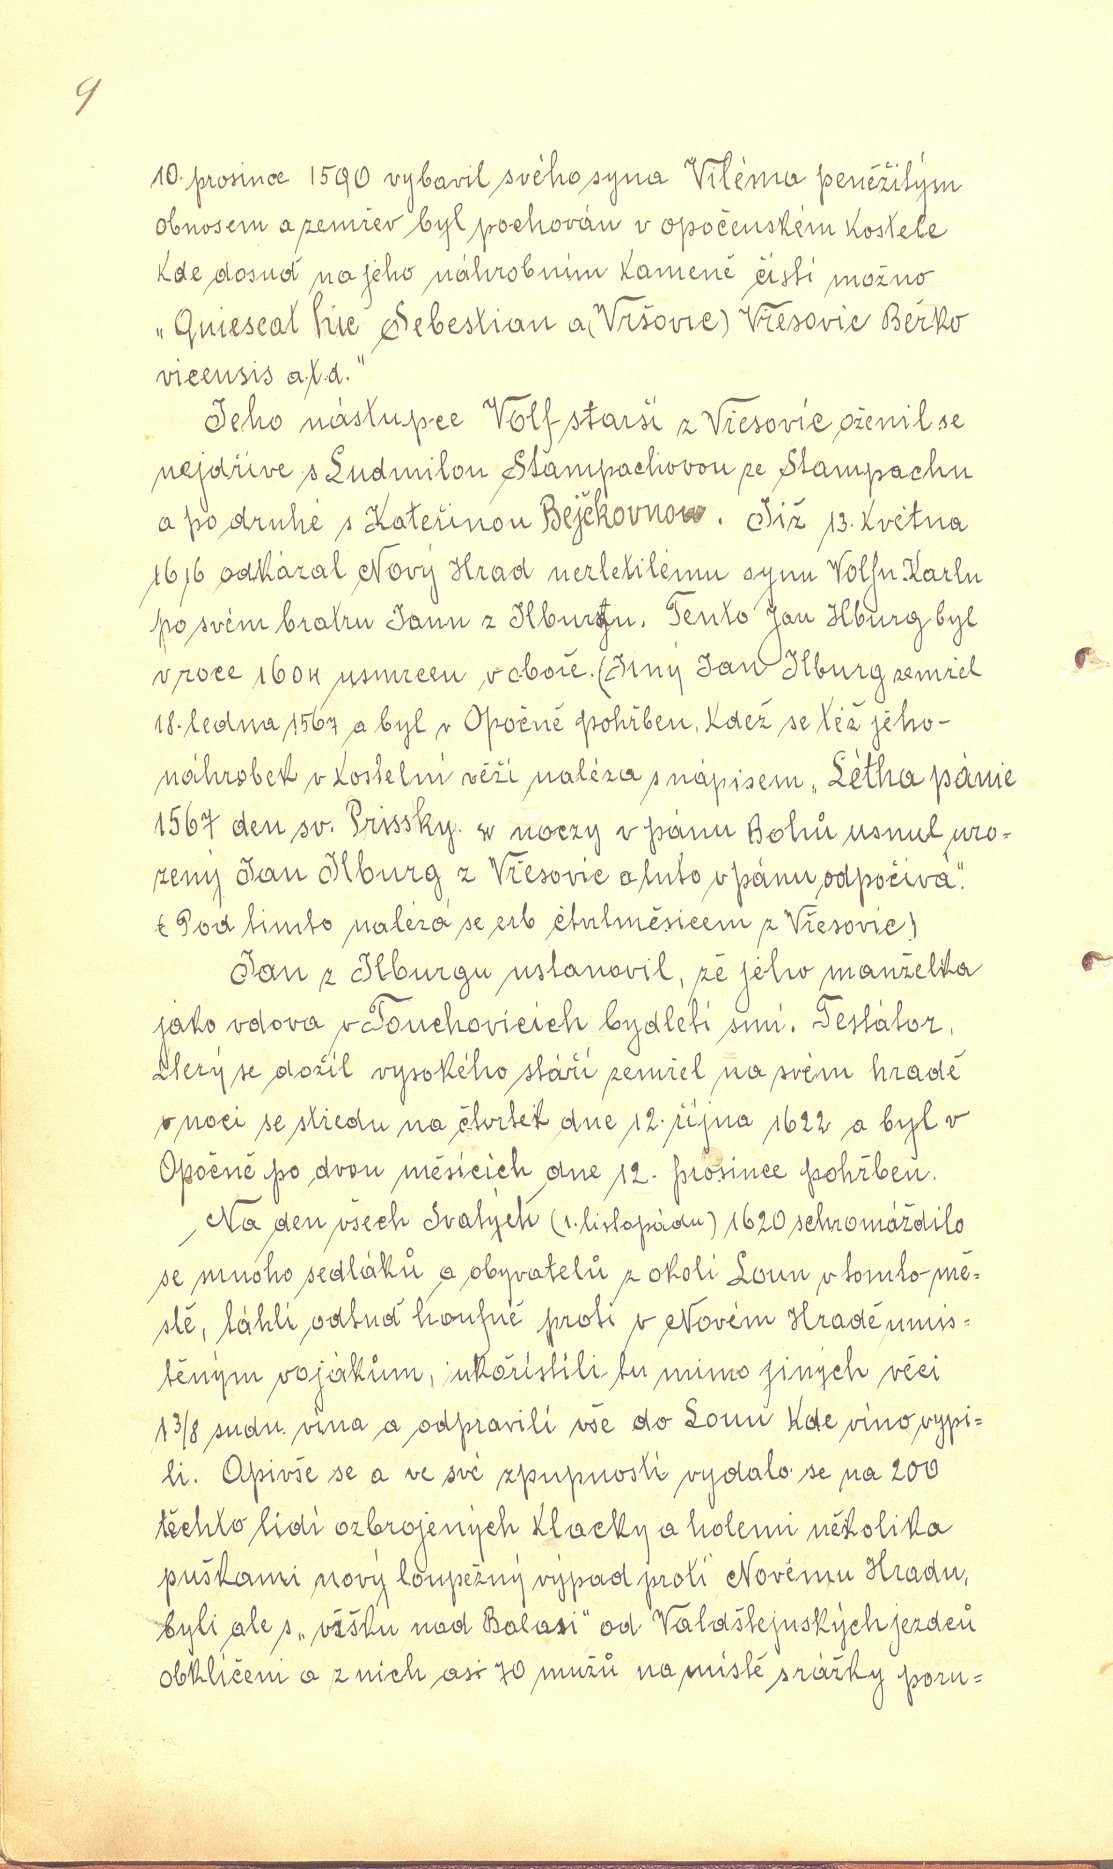 9
10. prosince 1590 vybavil svého syna Viléma peněžitým
obnosem a zemřev byl pochován v opočenském kostele
kde dosud na jeho náhrobním kameně čísti možno
„Quiescat hic Sebestian a (Vršovic) Vřesovic Berko
vicensis a.t.d."
Jeho nástupce Volf starší z Vřesovic oženil se
nejdříve s Ludmilou Štampachovou ze Štampachu
a po druhé s Kateřinou Bejčkovnou. Již 13. května
1616 odkázal Nový Hrad nezletilému synu Volfu Karlu
po svém bratru Janu z Ilburgu. Tento Jan Ilburg byl
v roce 1604 usmrcen v oboře. (Jiný Jan Ilburg zemřel
18. ledna 1567 a byl v Opočně pohřben, kdež se též jeho-
náhrobek v kostelní věži naléza s nápisem „Létha pánie
1567 den sv. Prissky w noczy v pánu Bohů usnul uro=
zený Jan Ilburg z Vřesovic a tuto v pánu odpočívá".
(Pod tímto nalézá se erb čtvrtměsícem z Vřesovic)
Jan z Ilburgu ustanovil, že jeho manželka
jako vdova v Touchovicích bydleti smí. Testátor,
který se dožil vysokého stáří zemřel na svém hradě
v noci se středu na čtvrtek dne 12. října 1622 a byl v
Opočně po dvou měsících dne 12. prosince pohřben.
Na den všech Svatých (1. listopádu) 1620 schromáždilo
se mnoho sedláků a obyvatelů z okolí Loun v tomto mě=
stě, táhli odtud houfně proti v Novém Hradě umís=
těným vojákům, ukořistili tu mimo jiných věcí
1 3/8 sudu vína a odpravili vše do Loun kde víno vypi=
li. Opivše se a ve své zpupnosti vydalo se na 200
těchto lidí ozbrojených klacky a holemi několika
puškami nový loupežný výpad proti Novému Hradu,
byli ale s „vršku nad Balasi" od Valdštejnských jezdců
obklíčeni a z nich asi 70 mužů na místě srážky poru=